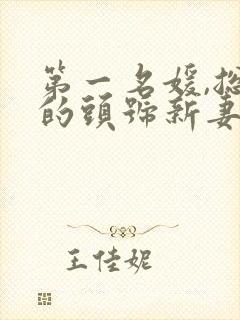 第一名媛,
的頭號新妻
王佳妮